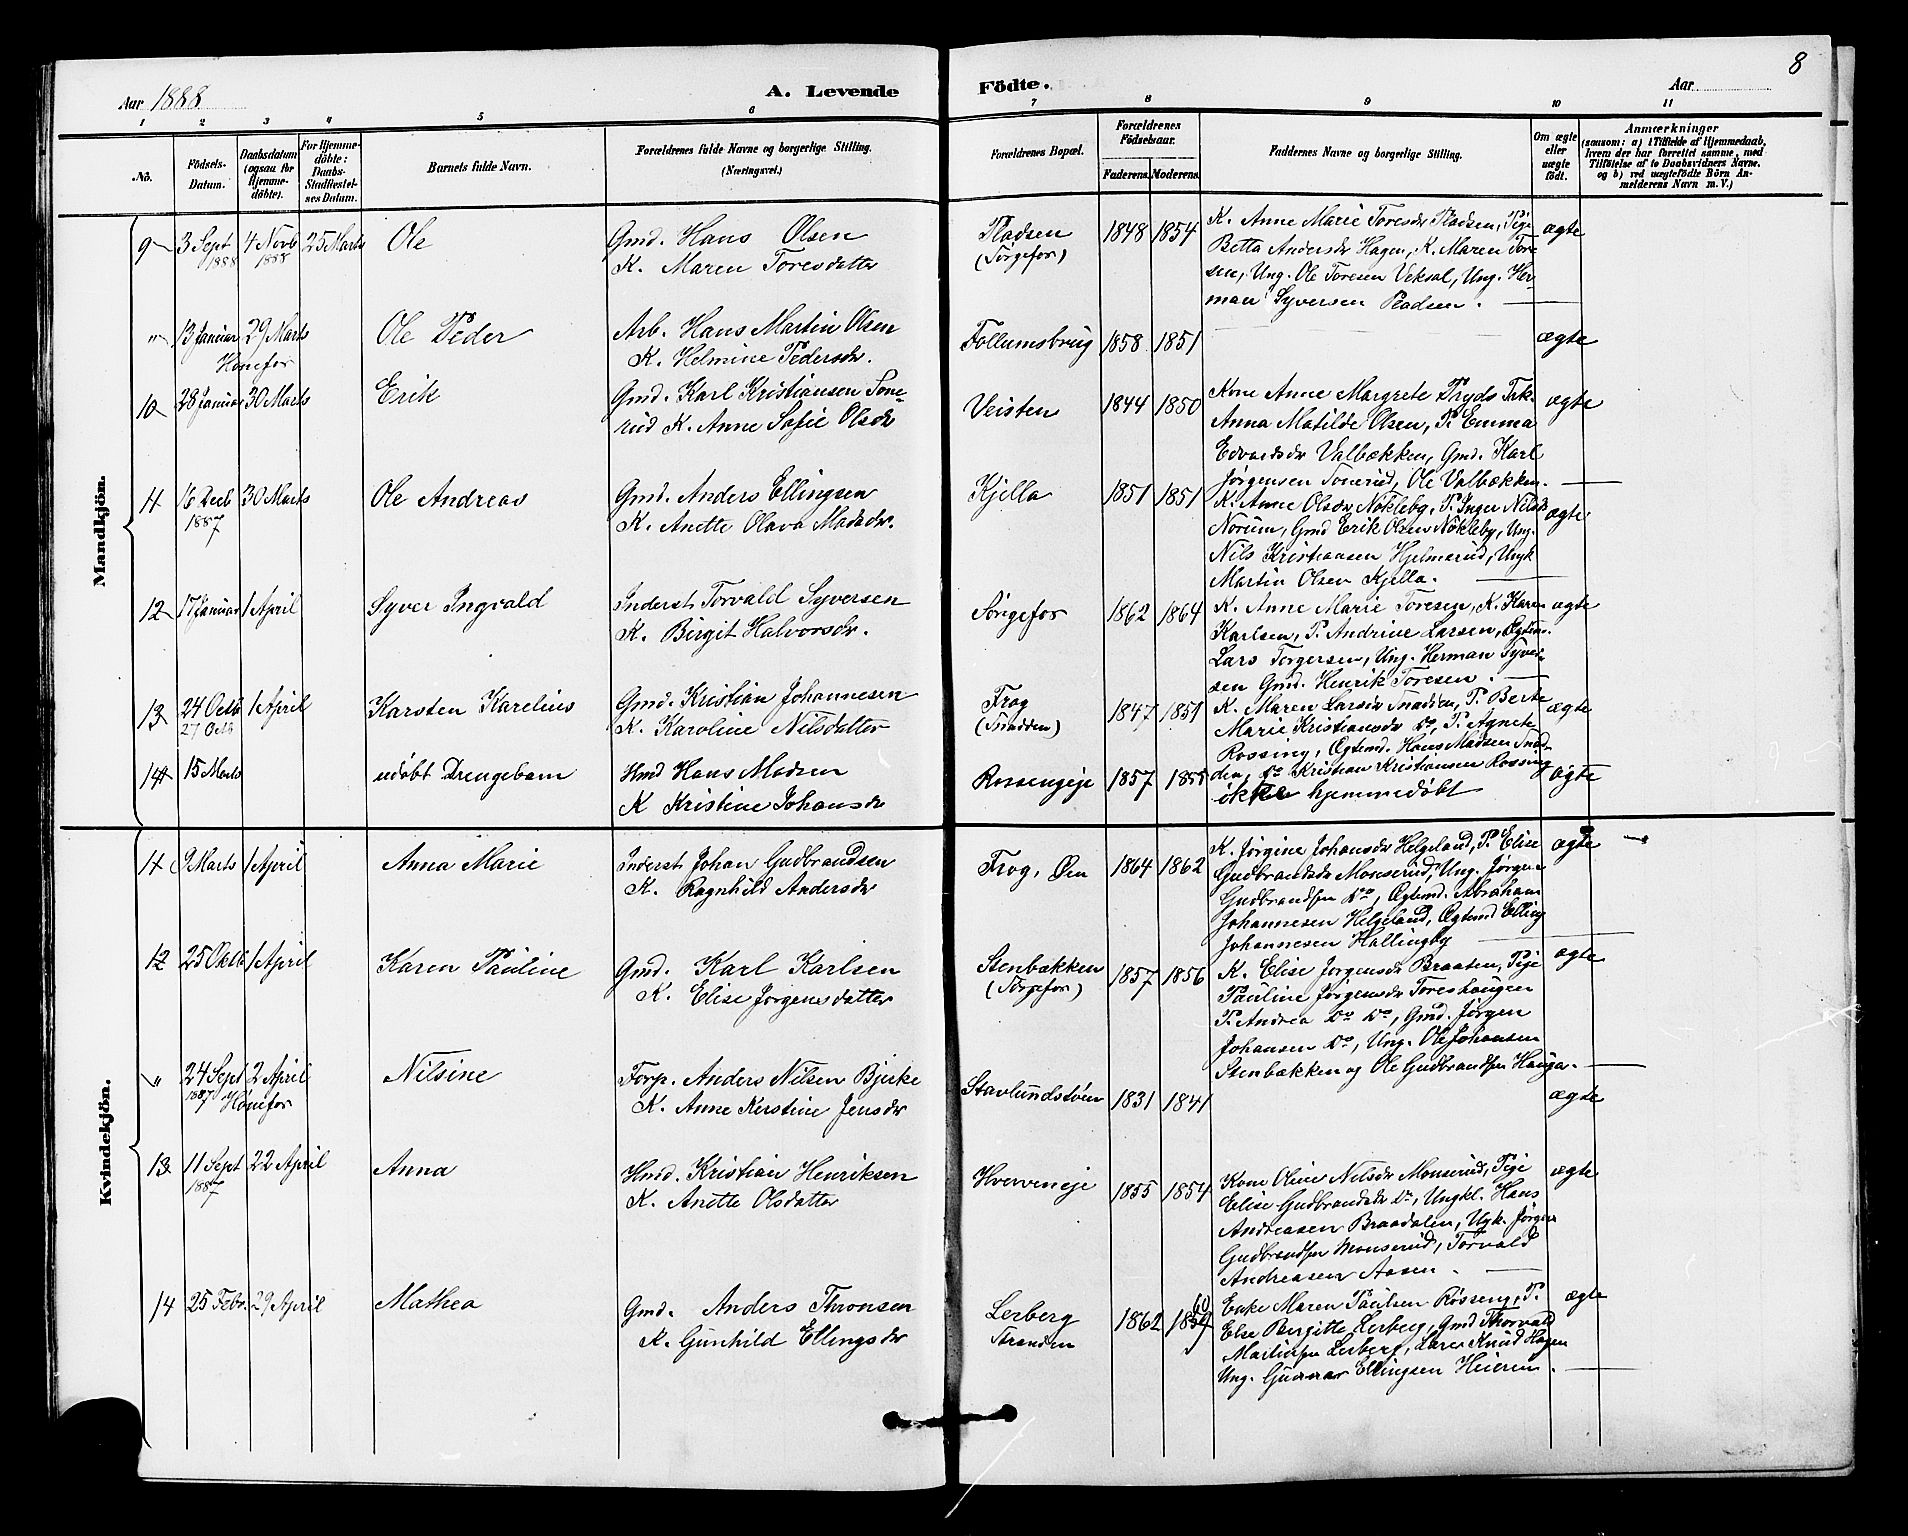 8
Aar 1888
A. Levende
Födte.
Aar
1 2 3 4 5 6 7 8 9 10 11
No.
Födsels-Datum.
Daabsdatum (ogsaa for Hjemme-döbte).
For Hjemme-döbte: Daabs-Stadfæstel-ses Datum.
Barnets fulde Navn.
Forældrenes fulde Navne og borgerlige Stilling.
(Næringsvei.)
Forældrenes Bopæl.
Forældrenes Födselsaar.
Faderens. Moderens.
Faddernes Navne og borgerlige Stilling.
Om ægte eller uægte födt.
Anmærkninger
(saasom: a) i Tilfælde af Hjemmedaab,
hvem der har forrettet samme, med
Tilföielse af to Daabsvidners Navne.
og b) ved uægtefödte Börn An-
melderens Navn m. V.)
Mandkjön.
9 3 Sept 1888 4 Novb 1888 25 Marts Ole
Gmd. Hans Olsen
K. Maren Toresdatter
Pladsen
(Sørgefos)
1848 1854
K. Anne Marie Toresdr Pladsen, Pige
Betta Andersdr Hagen, K. Maren Tore
sen, Ung. Ole Toresen Veksal, Ung. Her-
man Syversen Pladsen.
ægte
" 13 Januar 29 Marts
Hønefos
Ole Peder
Arb. Hans Martin Olsen
K. Helmine Pedersdr.
Follumsbrug 1858 1851 ægte
10 28 Januar 30 Marts Erik
Gmd. Karl Kristiansen Tone-
rud K. Anne Sofie Olsdr
Veisten 1844 1850
Kone Anne Margrete Tryds
Anna Matilde Olsen, P. Emma
Edvardsdr Valbækken, Gmd. Karl
Jørgensen Tonerud, Ole Valbækken.
ægte
11 16 Decb 1887 30 Marts Ole Andreas
Gmd. Anders Ellingsen
K. Anette Olava Madsdr.
Kjella 1851 1851
K. Anne Olsdr Nøkleby, P. Inger Nilsdr
Norum, Gmd Erik Olsen Nøkleby, Ung.
Nils Kristiansen Hjelmerud, Ungk
Martin Olsen Kjella.
ægte
12 17 Januar 1 April Syver Ingvald
Inderst Torvald Syversen
K. Birgit Halvorsdr.
Sørgefos 1862 1864
K. Anne Marie Toresen, K. Karen
Karlsen, P. Andrine Larsen, Ægtem.
Lars Torgersen, Ung. Herman Syver-
sen Gmd. Henrik Toresen.
ægte
13 24 Octb 27 Octb 1 April Karsten Karelius
Gmd. Kristian Johannesen
K. Karoline Nilsdatter
Frog
(Snadden)
1847 1851
K. Maren Larsdr Snadden, P. Berte
Marie Kristiansdr Do, P. Agnete
Rossing, Ægtemd. Hans Madsen Snad-
den, Do Kristian Kristiansen Rossing
ægte
14 15 Marts udøbt Drengebarn
Hmd Hans Madsen
K Kristine Johansdr
Rossengeje 1857 1855
ikke hjemmedøbt
ægte
Kvindekjön.
11 9 Marts 1 April Anna Marie
Inderst Johan Gudbrandsen
K. Ragnhild Andersdr
Frog, Øen 1864 1862
K. Jørgine Johansdr Helgeland, P. Elise
Gudbrandsdr Monserud, Ung. Jørgen
Gudbrandsen Do, Ægtemd. Abraham
Johannesen Helgeland, Ægtemd Elling
Johannesen Hallingby
ægte
12 25 Oktb 1 April Karen Pauline
Gmd. Karl Karlsen
K. Elise Jørgensdatter
Stenbækken
(Sørgefos)
1857 1856
K. Elise Jørgensdr Braaten, Pige
Pauline Jørgensdr Toreshaugen
P. Andrea Do Do, Gmd. Jørgen
Johansen Do, Ung. Ole Johansen
Stenbækken og Ole Gudbrandsen Hauga.
ægte
" 24 Sept 1887 2 April
Hønefos
Nilsine
Forp. Anders Nilsen Bjerke
K. Anne Kerstine Jensdr
Stavlundstøen 1831 1841 ægte
13 11 Sept 1887 22 April Anna
Hmd. Kristian Henriksen
K. Anette Olsdatter
Hverveneje 1855 1854
Kone Oline Nilsdr Monserud, Pige
Elise Gudbrandsdr Do, Ungkl. Hans
Andreasen Braadalen, Ugk. Jørgen
Gudbrandsen Monserud, Torvald
Andreasen Aasen.
ægte
14 25 Febr. 29 April Mathea
Gmd. Anders Thronsen
K. Gunhild Ellingsdr
Lerberg
Stranden
1862 1859 60
Enke Maren Paulsen Røsseng, P.
Else Birgitte Lerberg, Gmd Thorvald
Martinsen Lerberg, Lars Knud Hagen
Ung. Gunnar Ellingsen Heieren.
ægte